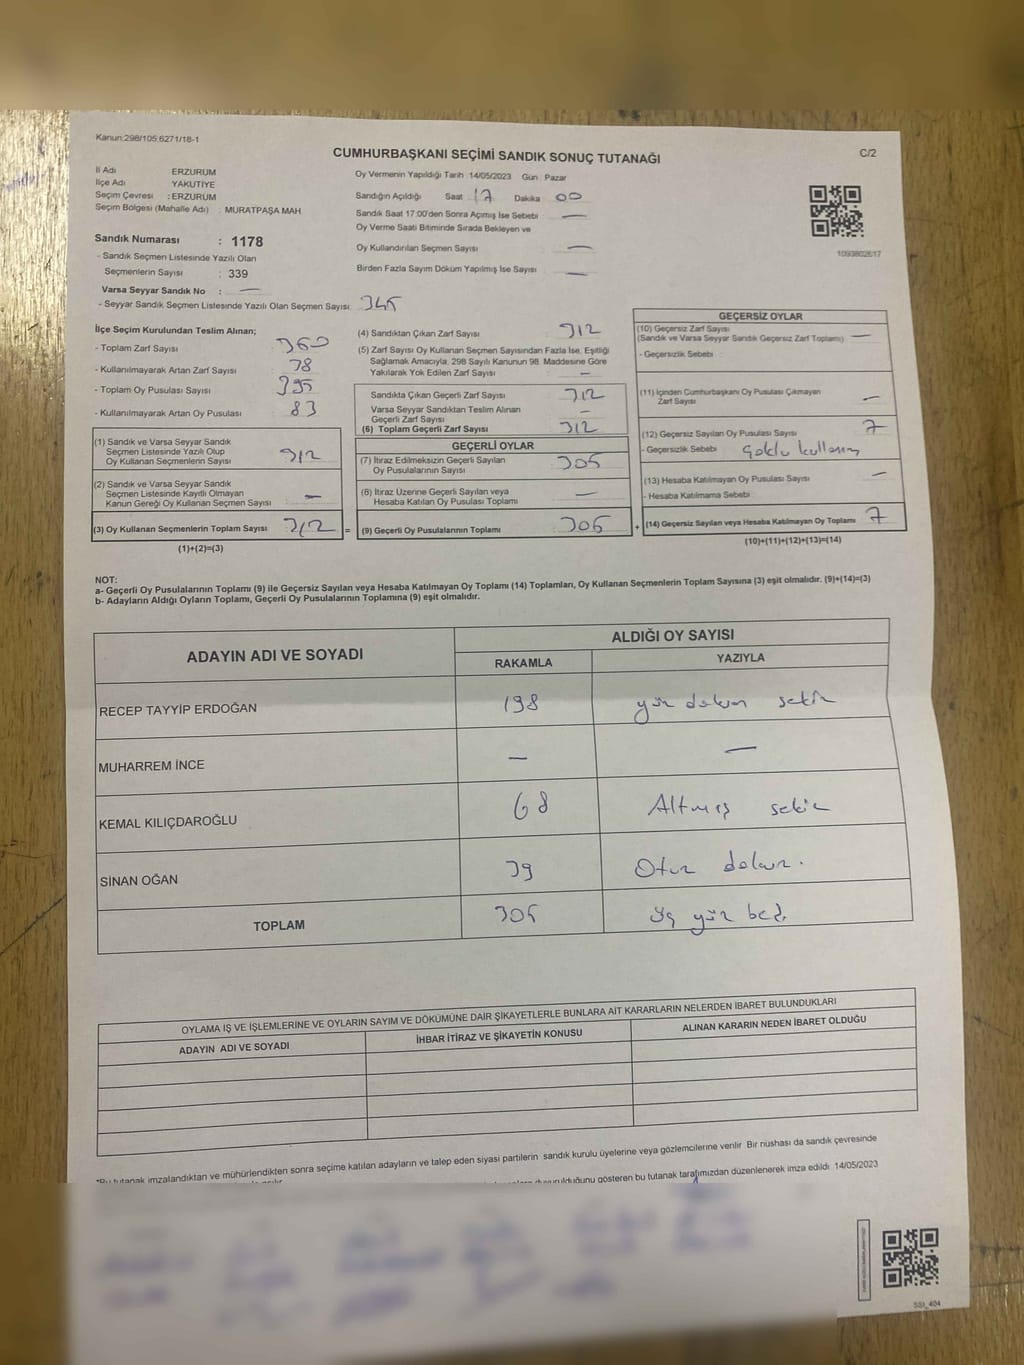 Kanun:298/105:6271/18-1
CUMHURBAŞKANI SEÇİMİ SANDIK SONUÇ TUTANAĞI
C/2
İl Adı ERZURUM
İlçe Adı YAKUTİYE
Seçim Çevresi : ERZURUM
Seçim Bölgesi (Mahalle Adı) : MURATPAŞA MAH
Sandık Numarası : 1178
- Sandık Seçmen Listesinde Yazılı Olan
Seçmenlerin Sayısı : 339
Varsa Seyyar Sandık No : —
- Seyyar Sandık Seçmen Listesinde Yazılı Olan Seçmen Sayısı: 345
Oy Vermenin Yapıldığı Tarih 14/05/2023 Gün : Pazar
Sandığın Açıldığı Saat 17 Dakika 00
Sandık Saat 17:00'den Sonra Açılmış İse Sebebi —
Oy Verme Saati Bitiminde Sırada Bekleyen ve
Oy Kullandırılan Seçmen Sayısı —
Birden Fazla Sayım Döküm Yapılmış İse Sayısı —
1093802617
İlçe Seçim Kurulundan Teslim Alınan;
- Toplam Zarf Sayısı 360
- Kullanılmayarak Artan Zarf Sayısı 38
- Toplam Oy Pusulası Sayısı 395
- Kullanılmayarak Artan Oy Pusulası 83
(1) Sandık ve Varsa Seyyar Sandık
Seçmen Listesinde Yazılı Olup
Oy Kullanan Seçmenlerin Sayısı 312
(2) Sandık ve Varsa Seyyar Sandık
Seçmen Listesinde Kayıtlı Olmayan
Kanun Gereği Oy Kullanan Seçmen Sayısı —
(3) Oy Kullanan Seçmenlerin Toplam Sayısı 312 =
(1)+(2)=(3)
(4) Sandıktan Çıkan Zarf Sayısı 312
(5) Zarf Sayısı Oy Kullanan Seçmen Sayısından Fazla İse, Eşitliği
Sağlamak Amacıyla, 298 Sayılı Kanunun 98. Maddesine Göre
Yakılarak Yok Edilen Zarf Sayısı —
Sandıkta Çıkan Geçerli Zarf Sayısı 312
Varsa Seyyar Sandıktan Teslim Alınan
Geçerli Zarf Sayısı —
(6) Toplam Geçerli Zarf Sayısı 312
GEÇERLİ OYLAR
(7) İtiraz Edilmeksizin Geçerli Sayılan
Oy Pusulalarının Sayısı 305
(8) İtiraz Üzerine Geçerli Sayılan veya
Hesaba Katılan Oy Pusulası Toplamı —
(9) Geçerli Oy Pusulalarının Toplamı 305 +
GEÇERSİZ OYLAR
(10) Geçersiz Zarf Sayısı
(Sandık ve Varsa Seyyar Sandık Geçersiz Zarf Toplamı) —
- Geçersizlik Sebebi :
(11) İçinden Cumhurbaşkanı Oy Pusulası Çıkmayan
Zarf Sayısı —
(12) Geçersiz Sayılan Oy Pusulası Sayısı 7
- Geçersizlik Sebebi
(13) Hesaba Katılmayan Oy Pusulası Sayısı —
- Hesaba Katılmama Sebebi
(14) Geçersiz Sayılan veya Hesaba Katılmayan Oy Toplamı 7
(10)+(11)+(12)+(13)=(14)
NOT:
a- Geçerli Oy Pusulalarının Toplamı (9) ile Geçersiz Sayılan veya Hesaba Katılmayan Oy Toplamı (14) Toplamları, Oy Kullanan Seçmenlerin Toplam Sayısına (3) eşit olmalıdır. (9)+(14)=(3)
b- Adayların Aldığı Oyların Toplamı, Geçerli Oy Pusulalarının Toplamına (9) eşit olmalıdır.
ADAYIN ADI VE SOYADI ALDIĞI OY SAYISI
RAKAMLA YAZIYLA
RECEP TAYYİP ERDOĞAN 198 yüz doksan sekiz
MUHARREM İNCE — —
KEMAL KILIÇDAROĞLU 68 Altmış sekiz
SİNAN OĞAN 39 Otuz dokuz.
TOPLAM 305 üç yüz beş
OYLAMA İŞ VE İŞLEMLERİNE VE OYLARIN SAYIM VE DÖKÜMÜNE DAİR ŞİKAYETLERLE BUNLARA AİT KARARLARIN NELERDEN İBARET BULUNDUKLARI
ADAYIN ADI VE SOYADI İHBAR İTİRAZ VE ŞİKAYETİN KONUSU ALINAN KARARIN NEDEN İBARET OLDUĞU
*Bu tutanak imzalandıktan ve mühürlendikten sonra seçime katılan adayların ve talep eden siyasi partilerin sandık kurulu üyelerine veya gözlemcilerine verilir Bir nüshası da sandık çevresinde
duyurulduğunu gösteren bu tutanak tarafımızdan düzenlenerek imza edildi 14/05/2023
SSI_404